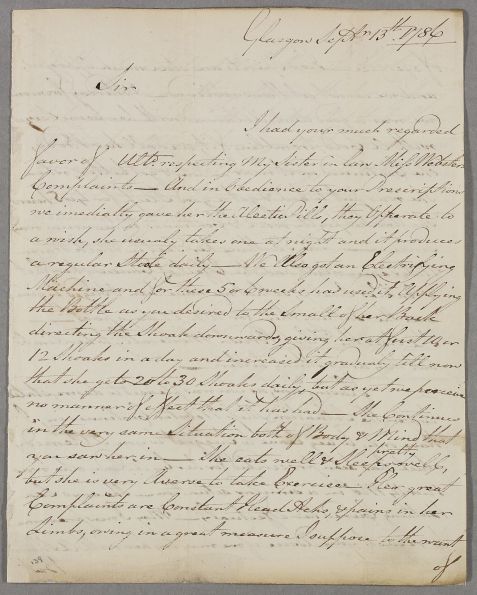 Glasgow Septr 13th 1786
Sir
I had your much regarded
favor of Ulto respecting My Sister in law Miss Webster
Complaints — And in Obedience to your Prescriptions
we imediatly gave her the Alectic Pills, they Opperate to
a wish, she usualy takes one at night and it produces
a regular Stole daily — We Also got an Electrifying
Machine and for these 5 or 6 weeks had used to Applying
the Bottle as you desired to the Small of her Back
directing the Shoak downwards, giving her at first 10 or
12 Shoaks in a day and increased it gradualy till now
that she gets 20 to 30 Shoaks daily, but as yet we perceive
no manner of effect that it has had — She Continues
in the very same Situation both of Body & Mind that
you saw her in — She eats well & Sleeps pretty well,
but she is very Averse to take Exercise — Her great
Complaints are Constant Head Achs, & pains in her
Limbs, owing in a great measure I suppose to the want
of